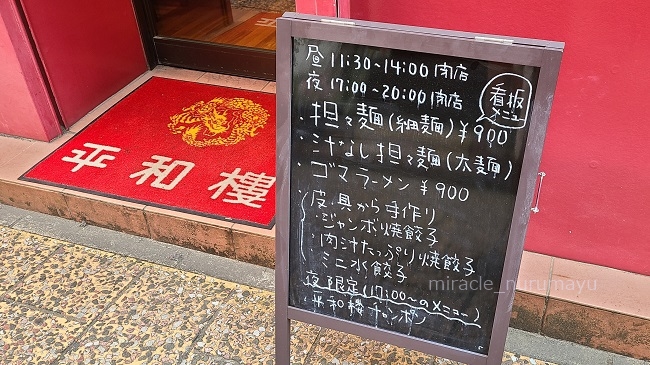 昼 11:30~14:00 閉店
夜 17:00~20:00 閉店
看板
メニュー
・担々麺(細麺)¥900
・汁なし担々麺(太麺)
・ゴマラーメン ¥900
皮・具から手作り
・ジャンボ焼餃子
・肉汁たっぷり焼餃子
・ミニ水餃子
夜限定(17:00~のメニュー)
・平和樓チャンポン
平和樓
miracle_nurumayu